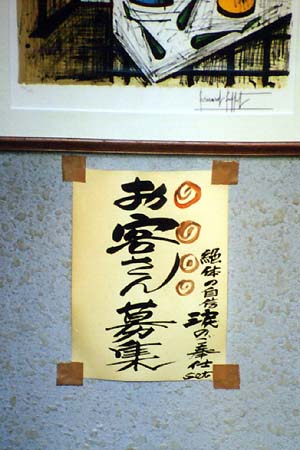 Bernard Buffet
絶体の自信
涙のご奉仕
set
お客さん募集